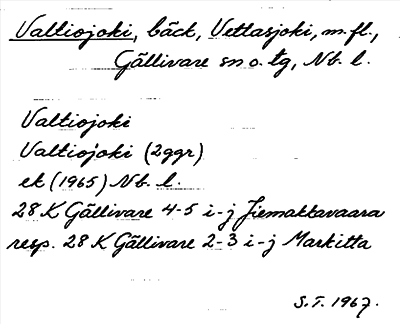 Valtiojoki, bäck, Vettasjoki, m.fl.,
Gällivare sn o. tg, Nb. l.
Valtiojoki
Valtiojoki (2ggr)
ek (1965) Nb. l.
28 K Gällivare 4-5 i-j Jiemakkavaara
resp. 28 K Gällivare 2-3 i-j Markitta
S.T. 1967.